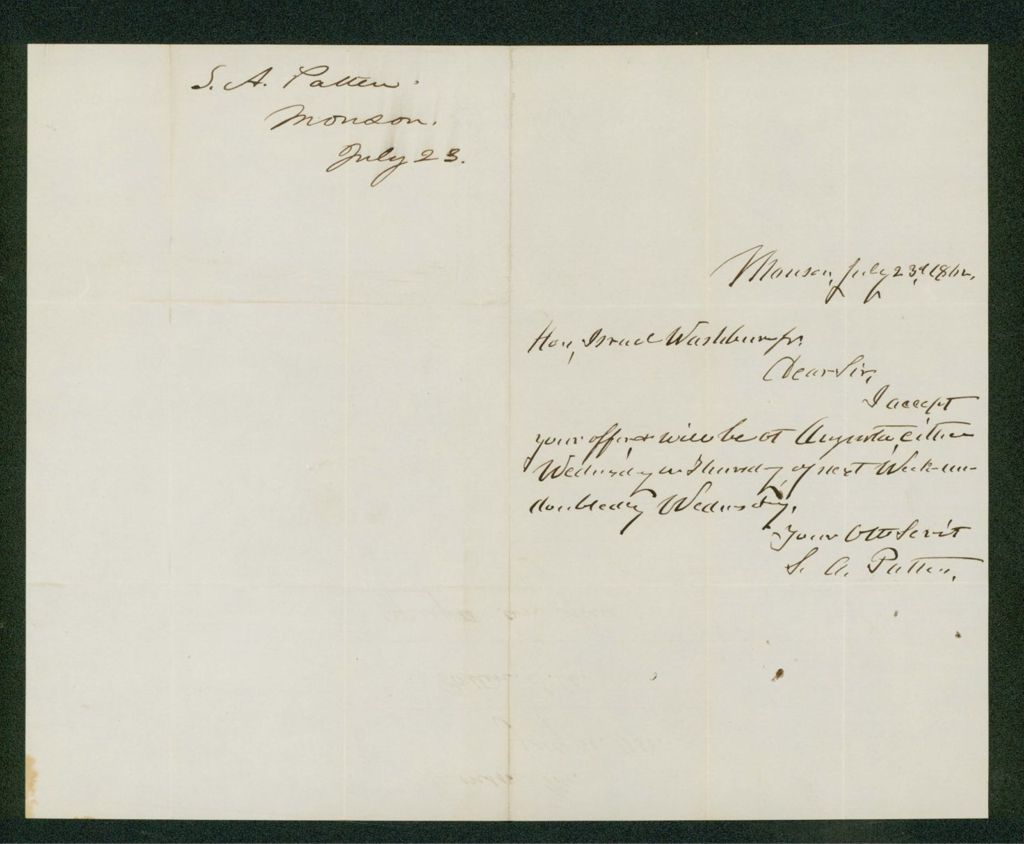 S. A. Patten.
Monson.
July 23.
Monson, July 23d 1862.
Hon. Israel Washburn Jr.
Dear Sir,
I accept
your offer & will be at Augusta, either
Wednesday or Thursday of next Week - un-
doubtedly Wednesday.
Your Obt Servt
S. A. Patten.